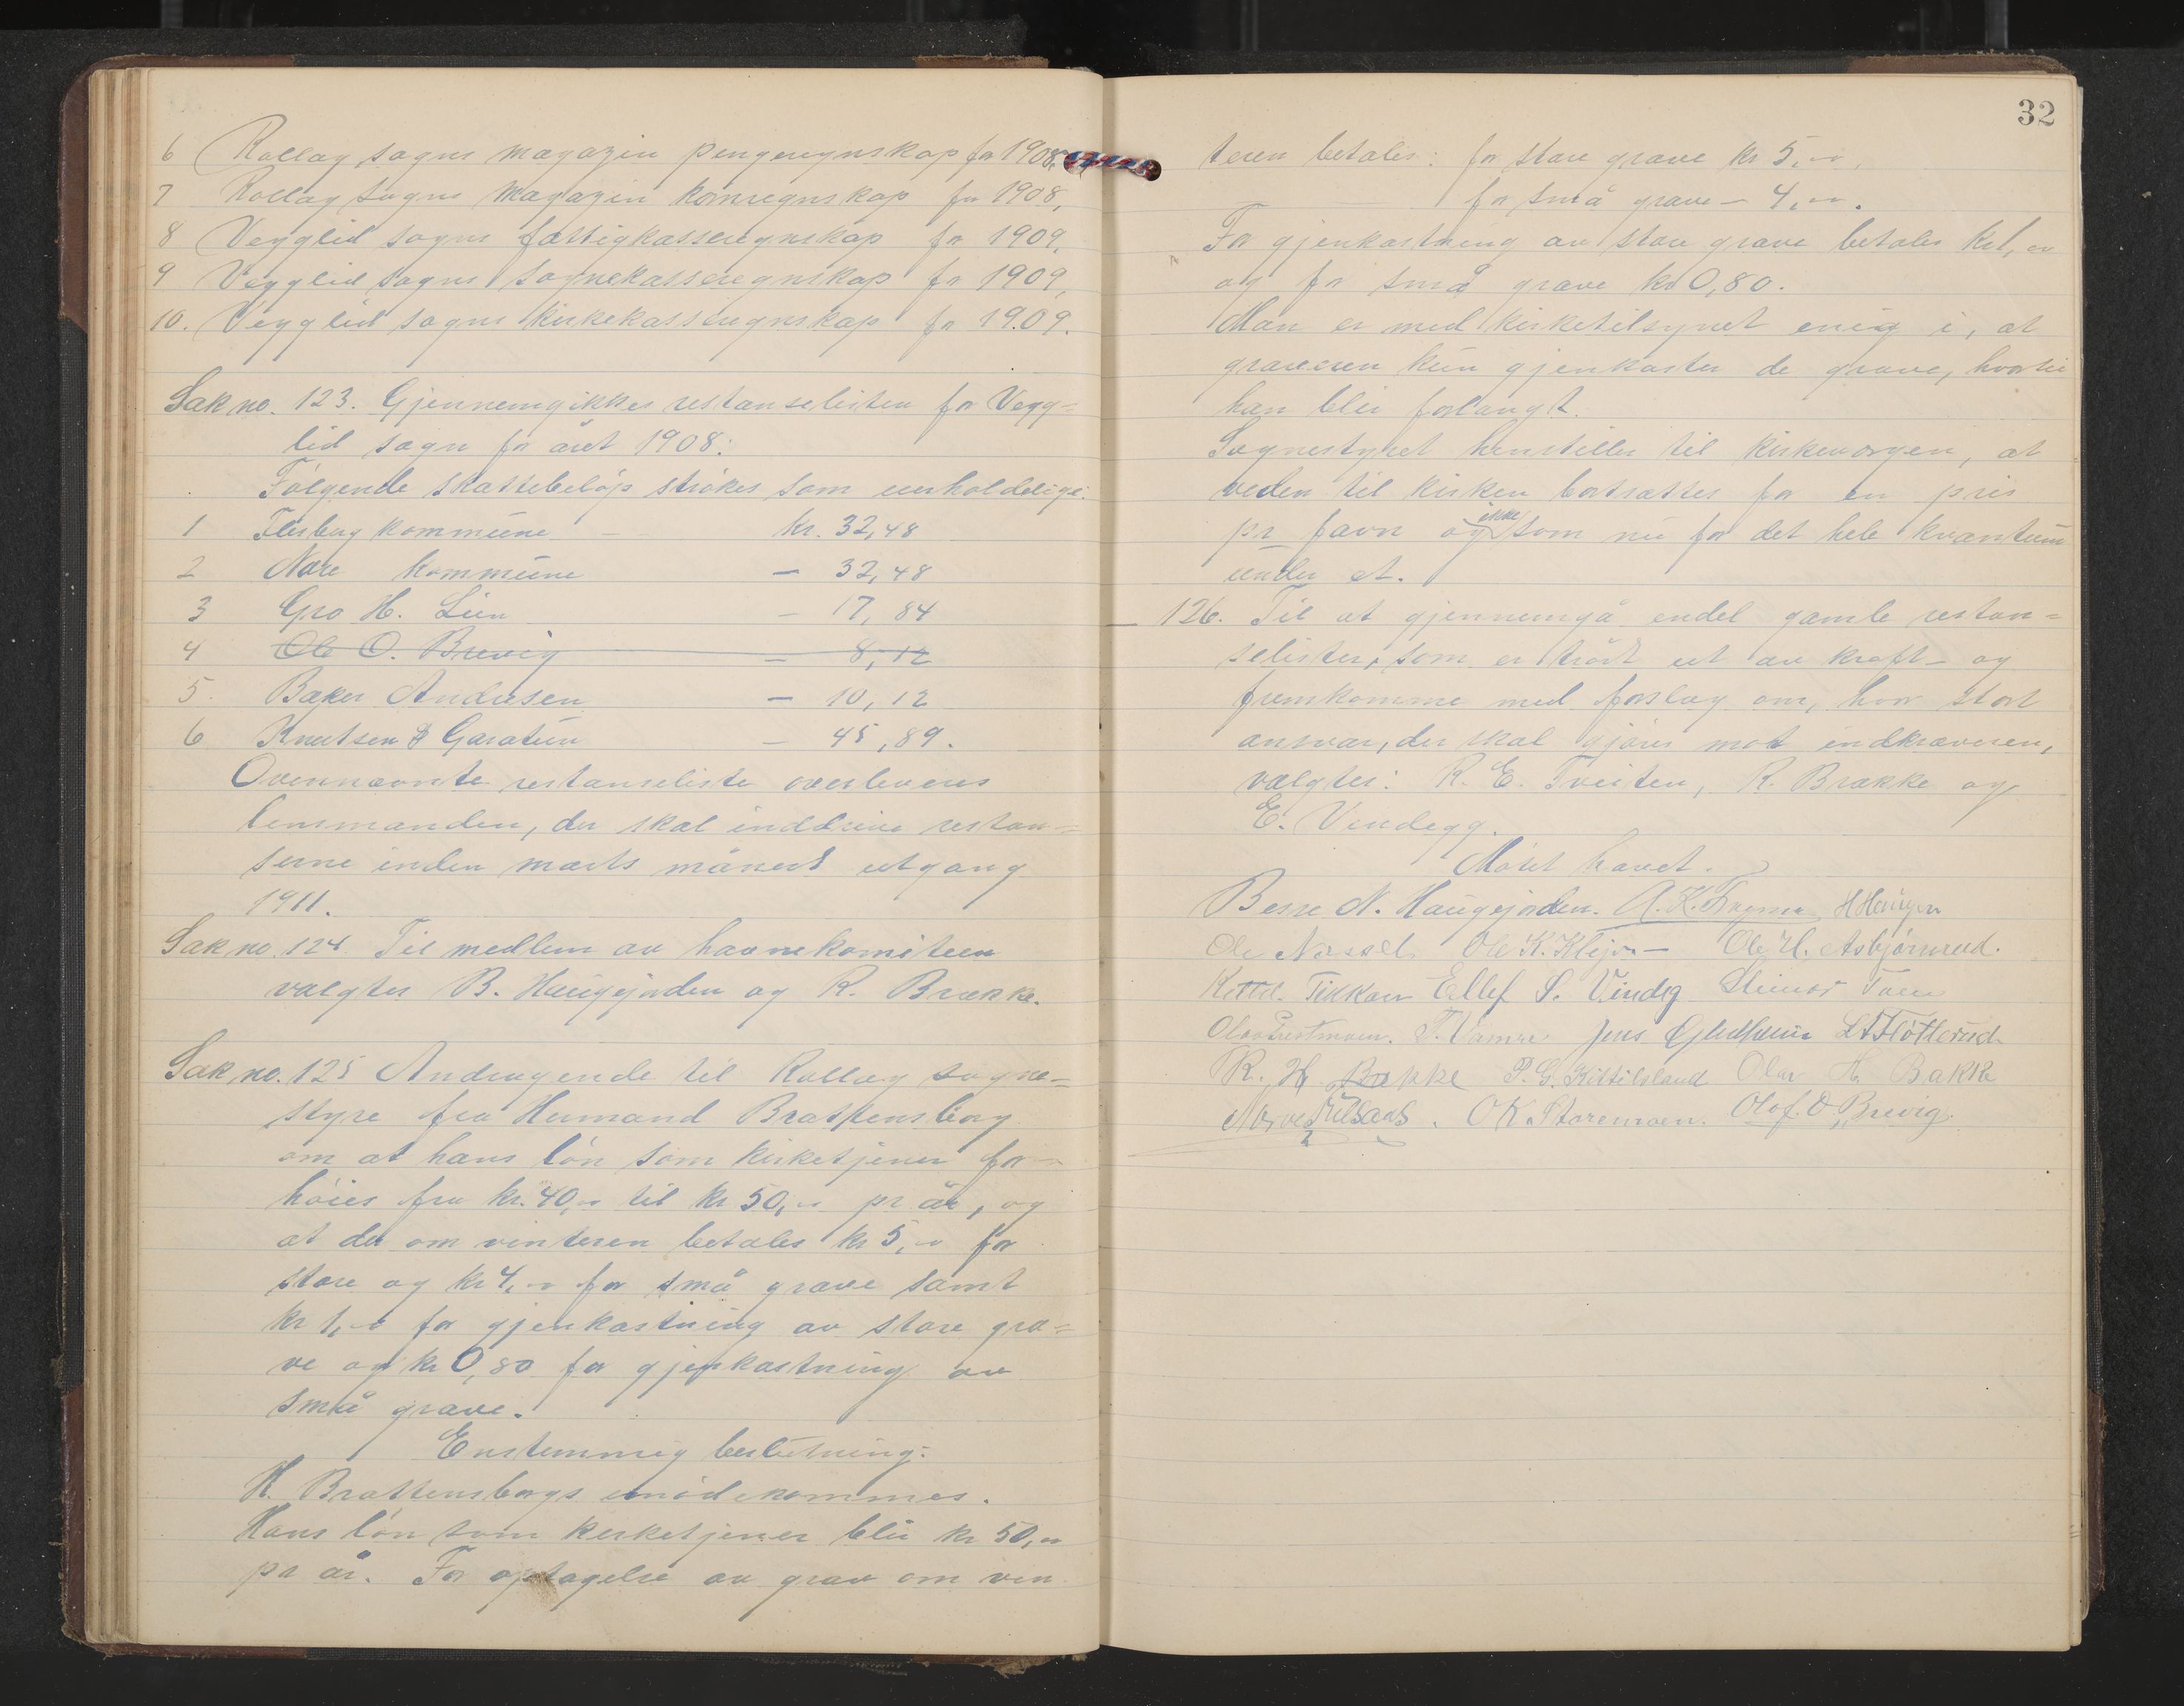 6 Rollag sogns magazin pengeregnskap for 1908,
7 Rollag sogns magazin kornregnskap for 1908,
8 Vegglid sogns fattigkasseregnskap for 1909,
9 Vegglid sogns sognekasseregnskap for 1909,
10. Vegglid sogns kirkekasseregnskap for 1909.
Sak no. 123. Gjennemgikkes restanselisten for Vegg=
lid sogn for året 1908:
Følgende skattebeløp strøkes som uerholdelige:
1 Flesberg kommune kr. 32,48
2 Nore kommune — 32,48
3 Gro H. Lien — 17,84
4 Ole O. Brevig — 8,12
5. Baker Andersen — 10,12
6 Knutsen & Garatun — 45,89.
Ovennævnte restanseliste overleveres
lensmanden, der skal inddrive restan=
serne inden marts måneds utgang
1911.
Sak no. 124. Til medlem av havnekomiteen
valgtes B. Haugejorden og R. Brække.
Sak no. 125 Andragende til Rollag sogne=
styre fra Hermand Brattensborg
om at hans løn som kirketjener for=
høies fra kr. 40,00 til kr 50,00 pr år, og
at der om vinteren betales kr 5,00 for
store og kr 4,00 for små grave samt
kr 1,00 for gjenkastning av store gra=
ve og kr 0,80 for gjenkastning av
små grave.
Enstemmig beslutning:
H. Brattensborgs imødekommes.
Hans løn som kirketjener blir kr 50,00
pr år. For optagelse av grav om vin
32
teren betales: for store grave kr 5,00,
for små grave — 4,00.
For gjenkastning av store grave betales kr 1,00
og for små grave kr 0,80.
Man er med kirketilsynet enig i, at
graveren kun gjenkaster de grave, hvortil
han blir forlangt.
Sognestyret henstiller til kirkeværgen, at
veden til kirken bortsættes for en pris
pr favn og ikke som nu for det hele kvantum
under et.
— 126. Til at gjennemgå endel gamle restan=
selister, som er trådt ut av kraft — og
fremkomme med forslag om, hvor stort
ansvar, der skal gjøres mot indkræveren,
valgtes: R. E. Tveiten, R. Brække og
E. Vindegg.
Møtet hævet.
Besse N. Haugejorden. A. K. H Haugen
Ole Ole K. Ole H. Asbjørnrud.
Kittil Ellef S. Vindeg Steinar
Olav T. Jens
R. H. Bakke P. G. Kittilsland Olav H. Bakke
O K Storemoen. Olof. O, Brevig.